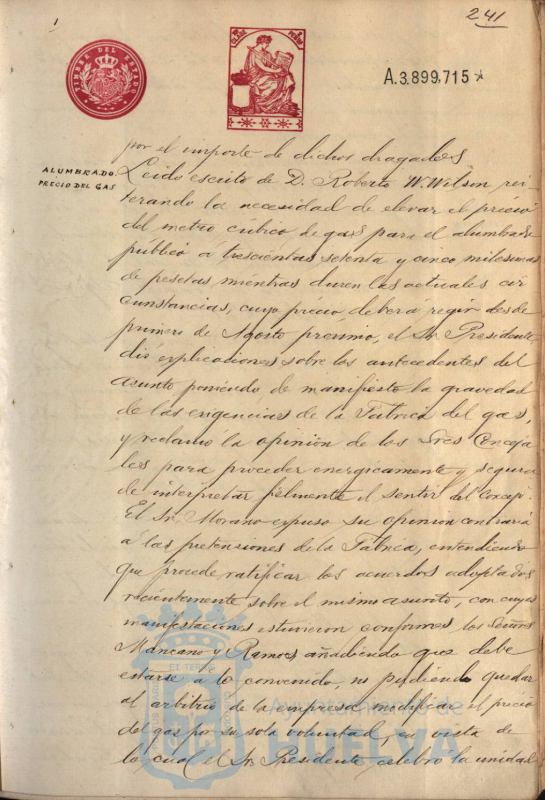 241
TIMBRE DEL ESTADO
A.3.899,715
ALUMBRADO.
PRECIO DEL GAS
por el importe de dichos dragados
Leido escrito de D. Roberto W. Wilson rei-
terando la necesidad de elevar el précio
del metro cúbico de gas para el alumbrado
público á trescientas setenta y cinco milesimas
de pesetas, mientras duren las actuales cir
cunstancias, cuyo précio deberá regir desde
primero de Agosto proximo, el Sr. Presidente,
dió explicaciones sobre los antecedentes del
asunto poniendo de manifiesto la gravedad
de las exigencias de la Fabrica del gas,
y reclamó la opinión de los Sres Conceja
les para proceder energicamente y seguro
de interpretar fielmente el sentir del Concejo.
El Sr. Morano expuso su opinion contraria
á las pretensiones de la Fabrica, entendiendo
que procede ratificar los acuerdos adoptados
recientemente sobre el mismo asunto, con cuyas
manifestaciones estuvieron conformes los Señores
Manzano y Ramos añadiendo que debe
estarse a lo convenido, no pudiendo quedar
al arbitrio de la empresa modificar el précio
del gas por su sola voluntad, en vista de
lo cual el Sr. Presidente celebró la unidad
Ayuntamiento de
HUELVA